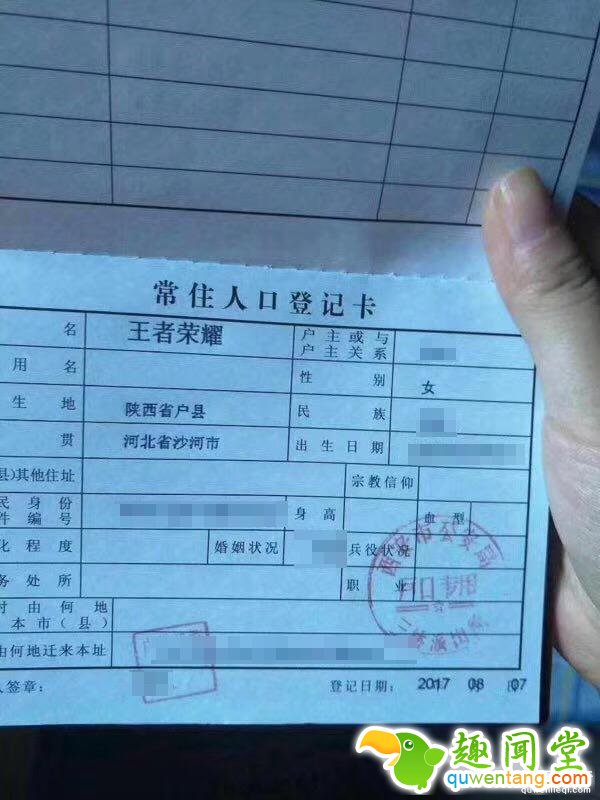 常住人口登记卡
名 王者荣耀 户主或与
户主关系
用名 性别 女
生地 陕西省户县 民族
贯 河北省沙河市 出生日期
县)其他住址 宗教信仰
民身份
件编号 身高 血型
化程度 婚姻状况 兵役状况
务处所 职业
时由何地
本市(县)
由何地迁来本址
人签章: 登记日期: 2017 08 07
西安市公安局
户口专用
趣闻堂
quwentang.com